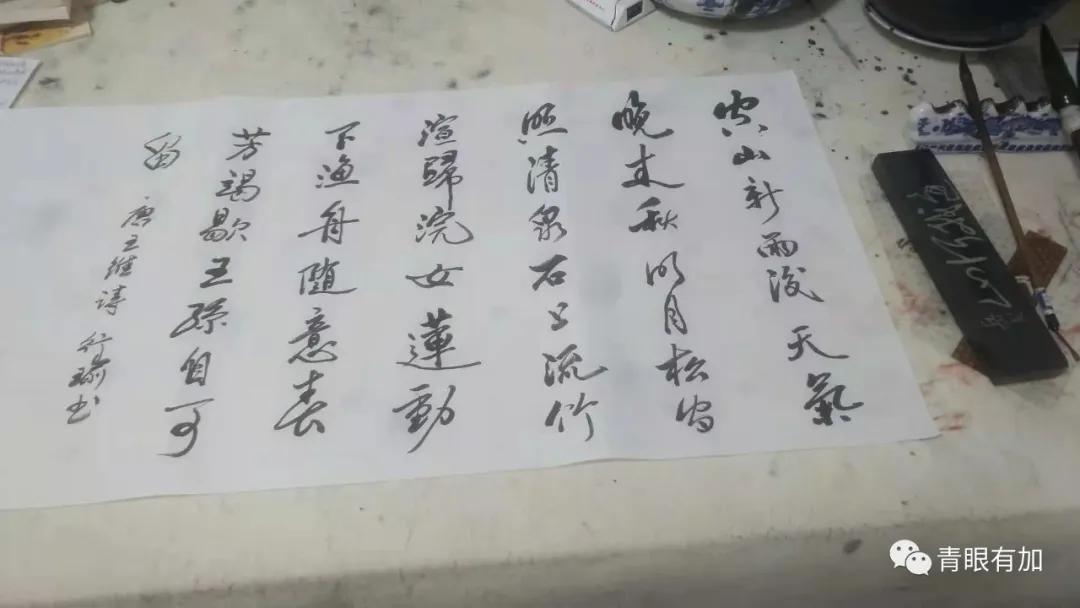 空山新雨後天氣
晚来秋明月松间
照清泉石上流竹
喧歸浣女蓮動
下渔舟随意春
芳竭歇王孫自可
留
唐王維詩 行瑜书
青眼有加